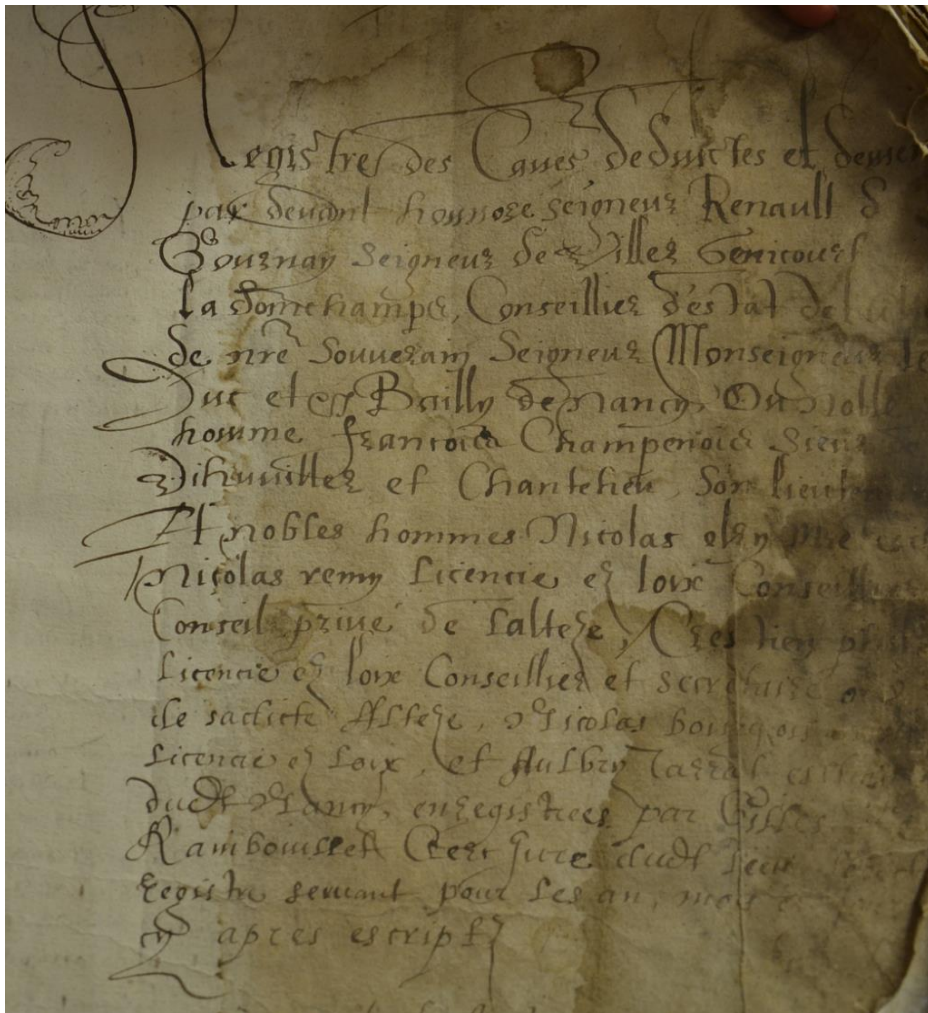 Registre des Causes deduictes et demen
par devant honnoré seigneur Renault d
Gournay seigneur de Viller Genicourt
la Domchamps, Conseillier d'estat de
de nre souverain seigneur Monseigneur le
Duc et Bailly de Nancy Ou Noble
homme francois Champenois sieur
et Chanteheu, son lieuten
Et nobles hommes Nicolas olry
Nicolas remy Licencie es loix Conseillier
Conseil privé de Lalteze, Chrestien
Licencie es loix Conseillier et secretaire
de sadicte Alteze, Nicolas bourgois
Licencie es Loix, et Aulbry
dudt Nancy, enregistrees par Gilles
Rambouillet Clerc jure dudt lieu
Registre servant pour les an, mois et
cy apres escriptz